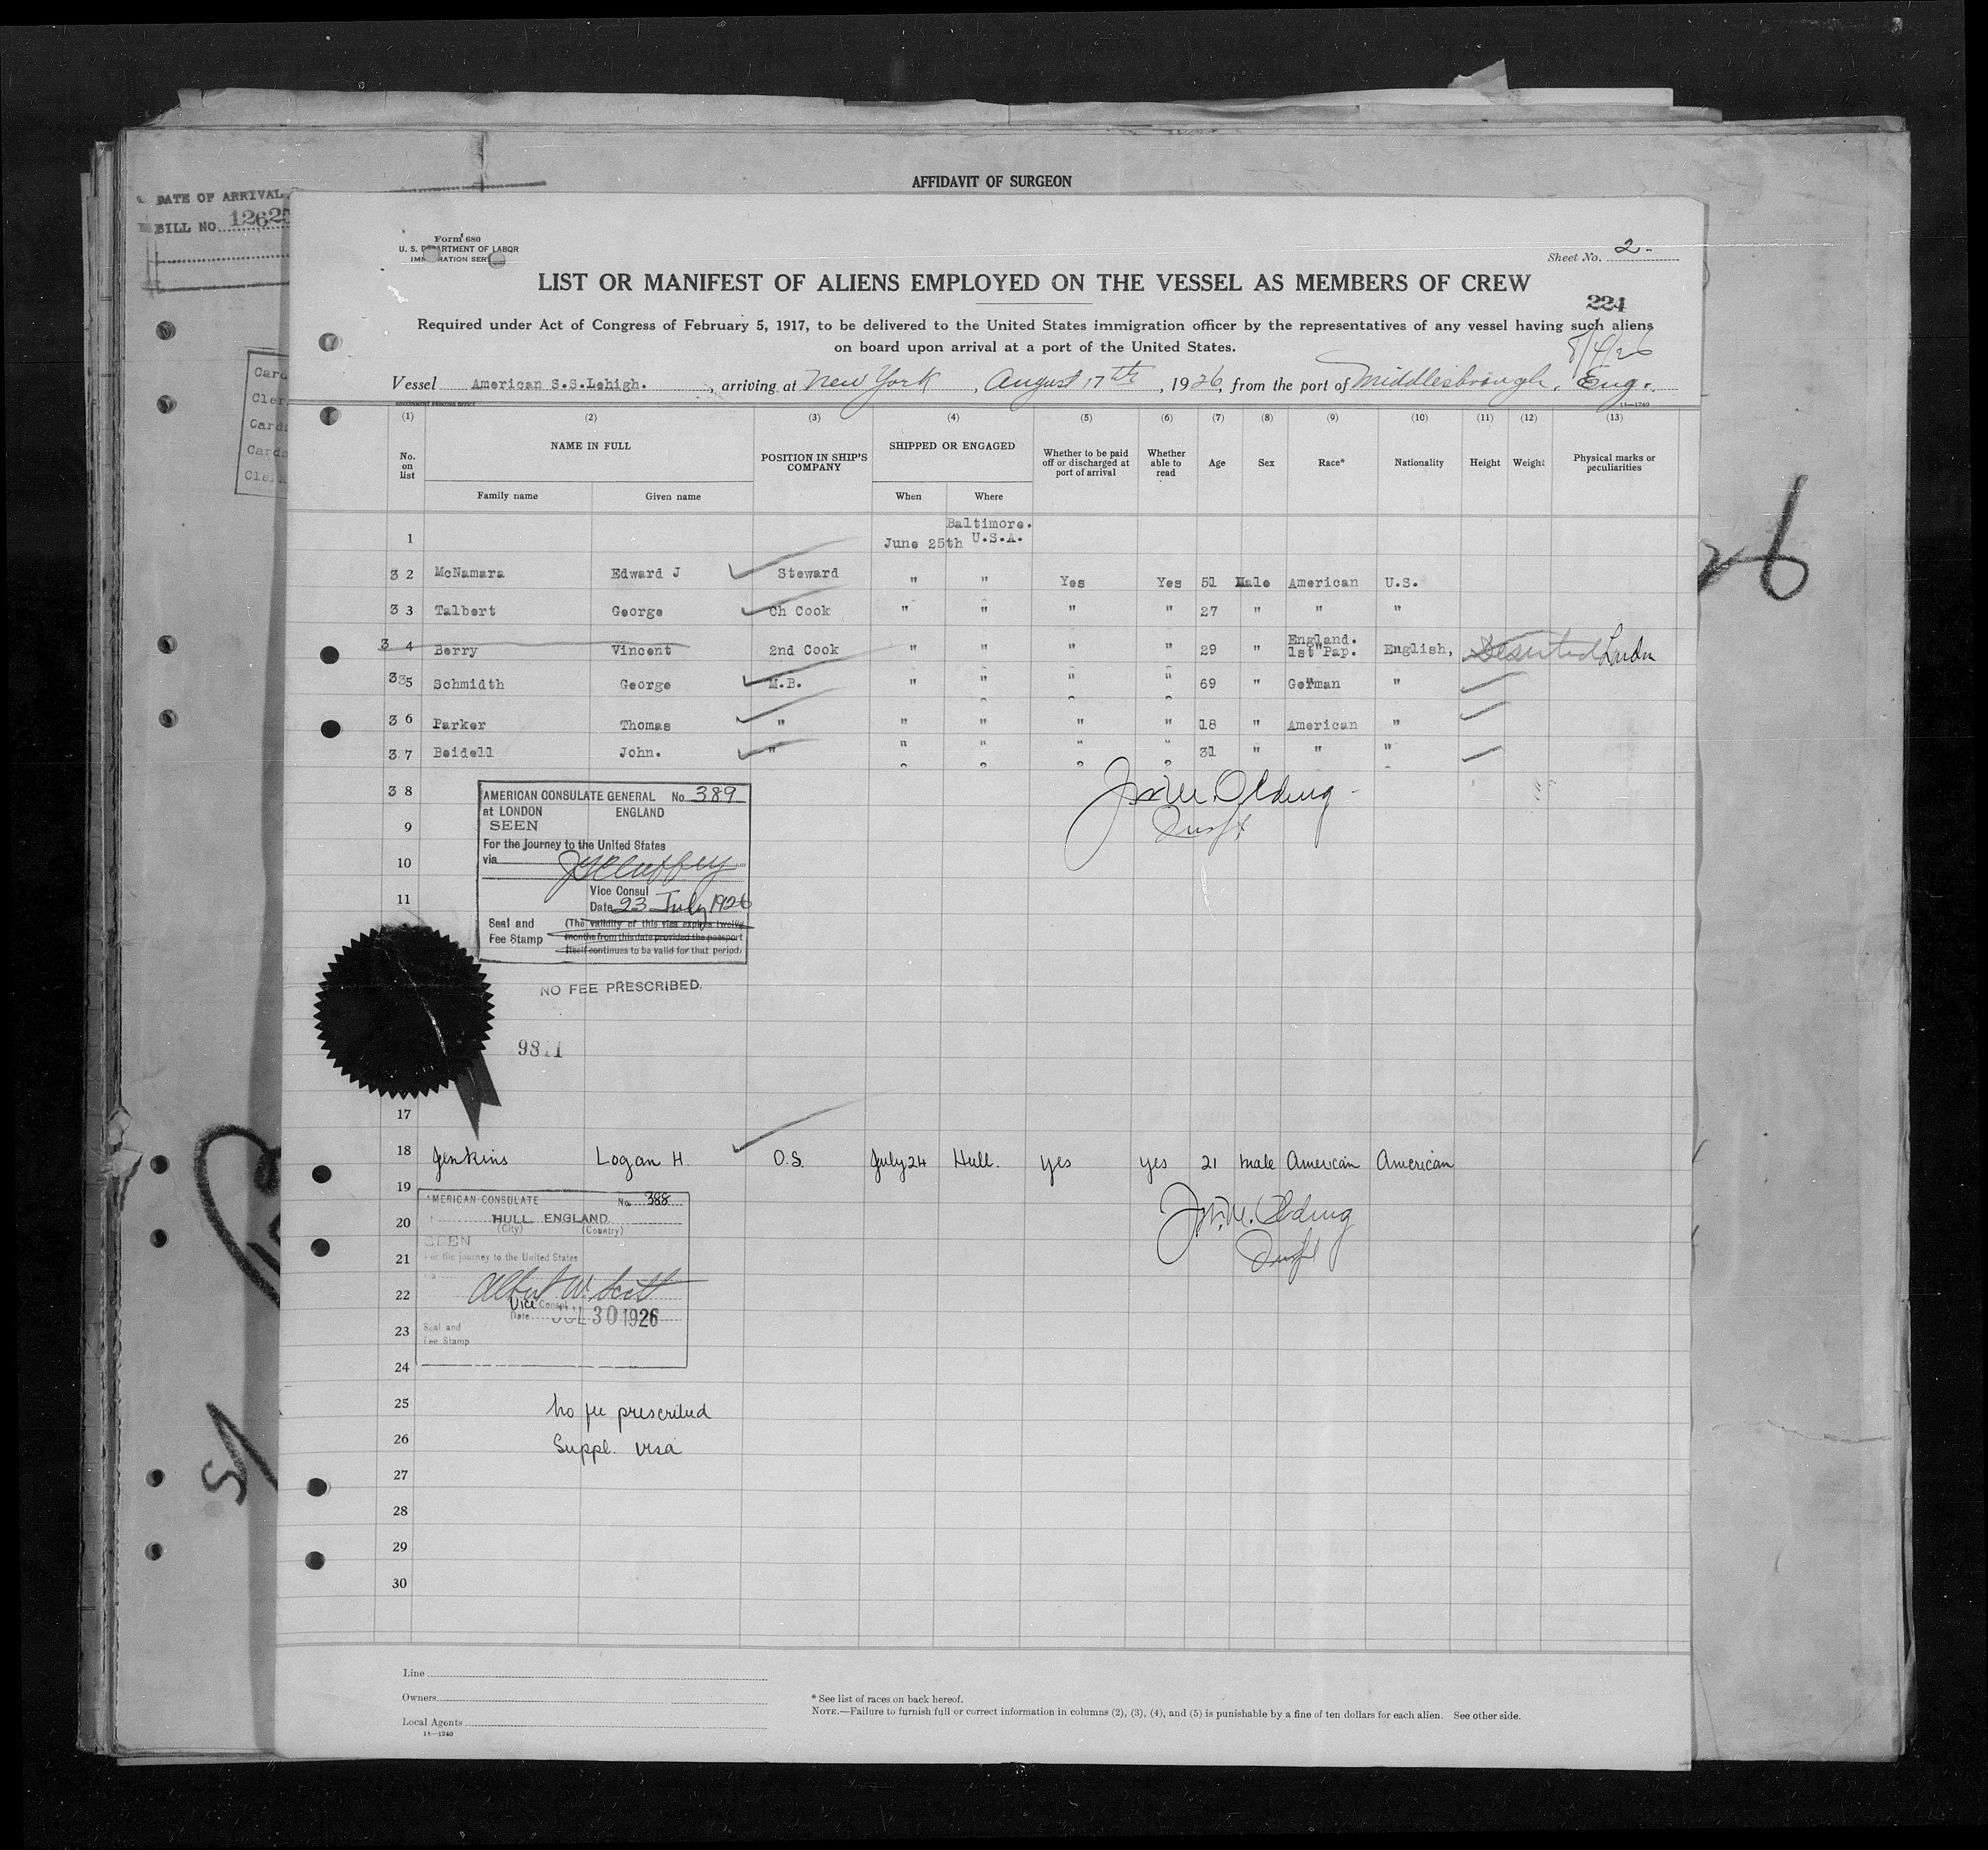 AFFIDAVIT OF SURGEON
DATE OF ARRIVAL
BILL NO. 1262
Form 680
U. S. DEPARTMENT OF LABOR
IMMIGRATION SERVICE
Sheet No. 2-
LIST OR MANIFEST OF ALIENS EMPLOYED ON THE VESSEL AS MEMBERS OF CREW
224
Required under Act of Congress of February 5, 1917, to be delivered to the United States immigration officer by the representatives of any vessel having such aliens
on board upon arrival at a port of the United States.
8/4/26
Vessel American S.S.Lehigh. , arriving at New York , August 17th , 1926, from the port of Middlesbrough, Eng.
GOVERNMENT PRINTING OFFICE 14—1240
(1) (2) (3) (4) (5) (6) (7) (8) (9) (10) (11) (12) (13)
No. on list NAME IN FULL POSITION IN SHIP'S COMPANY SHIPPED OR ENGAGED Whether to be paid off or discharged at port of arrival Whether able to read Age Sex Race* Nationality Height Weight Physical marks or peculiarities
Family name Given name When Where
1 June 25th Baltimore. U.S.A.
3 2 McNamara Edward J Steward " " Yes Yes 51 Male American U.S.
3 3 Talbert George Ch Cook " " " " 27 " " "
3 4 Berry Vincent 2nd Cook " " " " 29 " England. 1st Pap. English, Deserted London
3 35 Schmidth George M.B. " " " " 69 " German "
3 6 Parker Thomas " " " " " 18 " American "
3 7 Beidell John. " " " " " 31 " " "
3 8
9
10
11
AMERICAN CONSULATE GENERAL No. 389
at LONDON ENGLAND
SEEN
For the journey to the United States
via
Vice Consul
Date 23 July 1926
Seal and Fee Stamp (The validity of this visa expires twelve
months from this date provided the passport
itself continues to be valid for that period)
Jno. M. Olding
Insp.
NO FEE PRESCRIBED.
17
18 Jenkins Logan H. O.S. July 24 Hull. yes yes 21 male American American
19
20
21
22
23
24
AMERICAN CONSULATE No. 388
HULL, ENGLAND
(City) (Country)
SEEN
For the journey to the United States
via
Albert W. Scott
Vice Consul
Date JUL 30 1926
Seal and
Fee Stamp
Jno. M. Olding
Insp
25 No fee prescribed
26 Suppl. visa
27
28
29
30
Line
Owners
Local Agents
14—1240
* See list of races on back hereof.
NOTE.—Failure to furnish full or correct information in columns (2), (3), (4), and (5) is punishable by a fine of ten dollars for each alien. See other side.
26